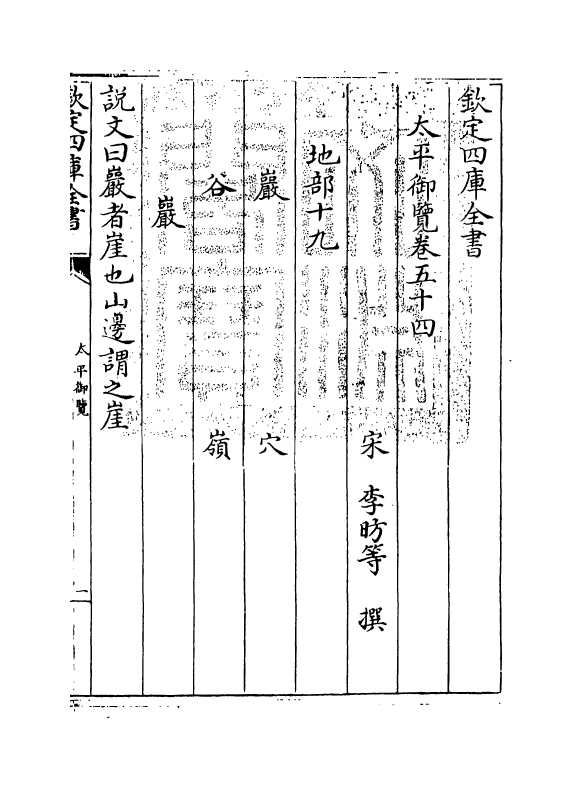 欽定四庫全書
太平御覽卷五十四
宋　李昉等　撰
地部十九
巖　穴
谷　嶺
巖
説文曰巖者崖也山邊謂之崖
欽定四庫全書
太平御覽
二